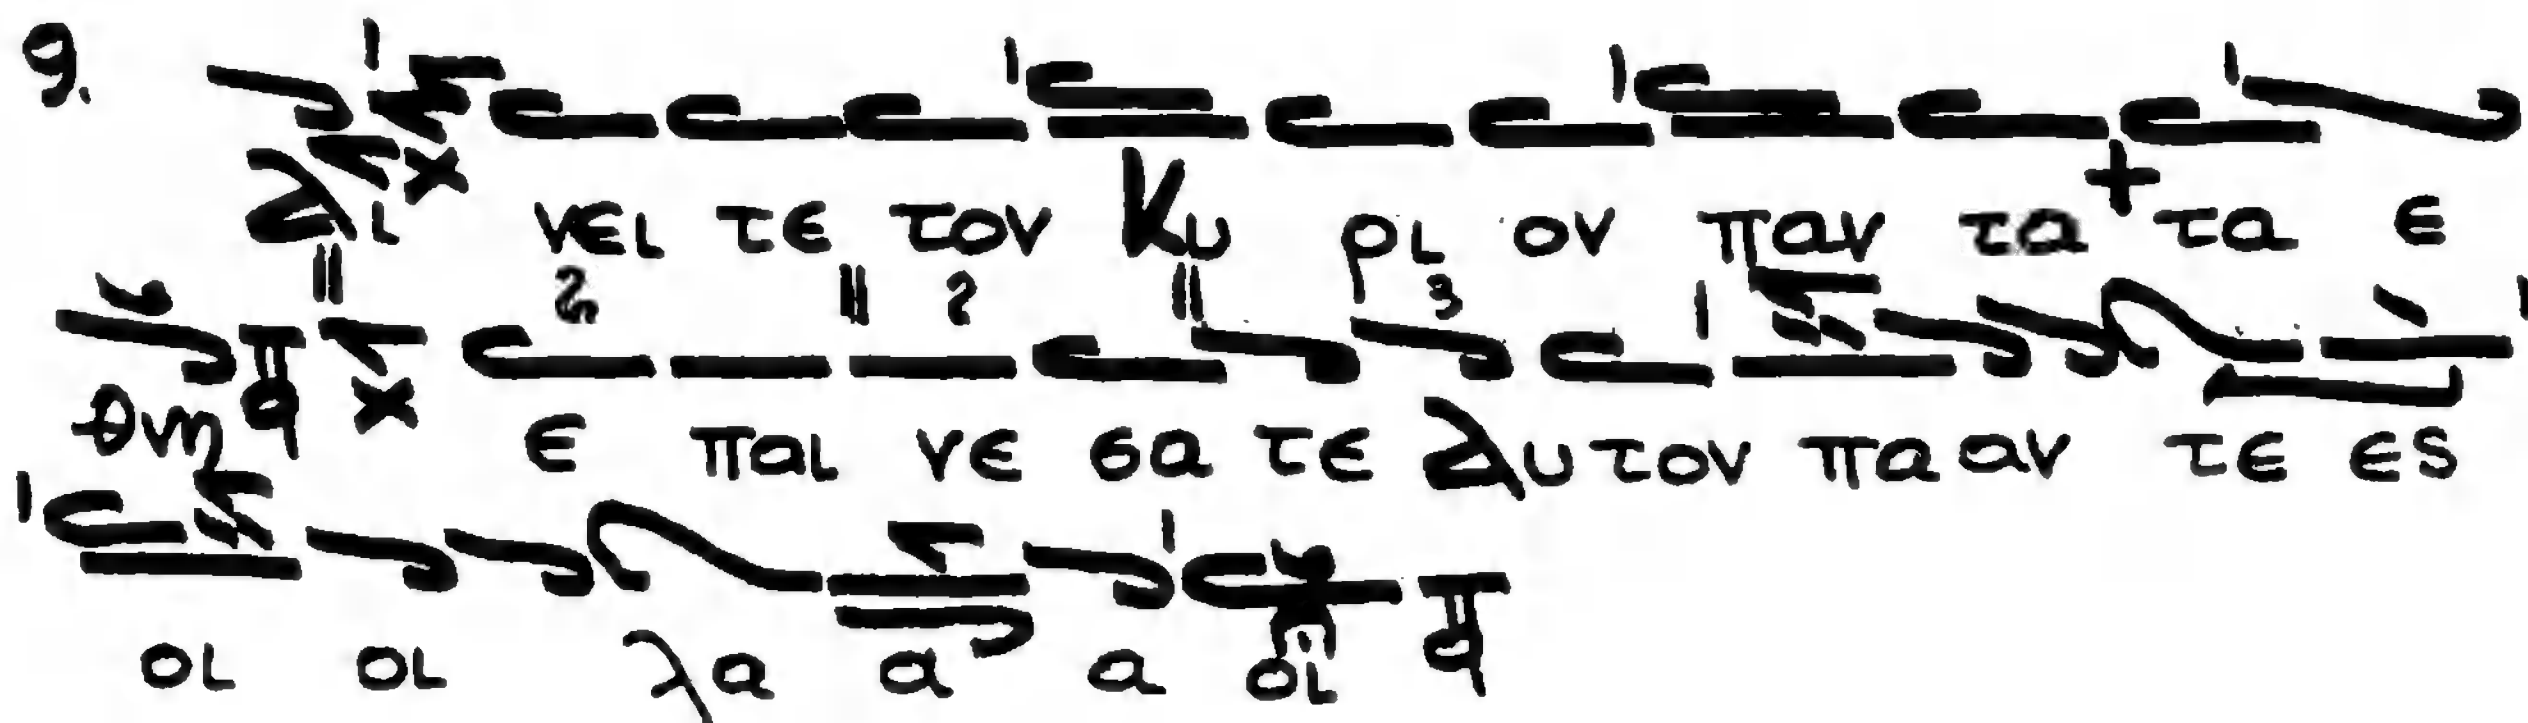 9.
Αι νει τε τον Κυ ρι ον παν τα τα ε
θνη ε παι νε σα τε Αυτον πα αν τε ες
οι οι λα α α οι